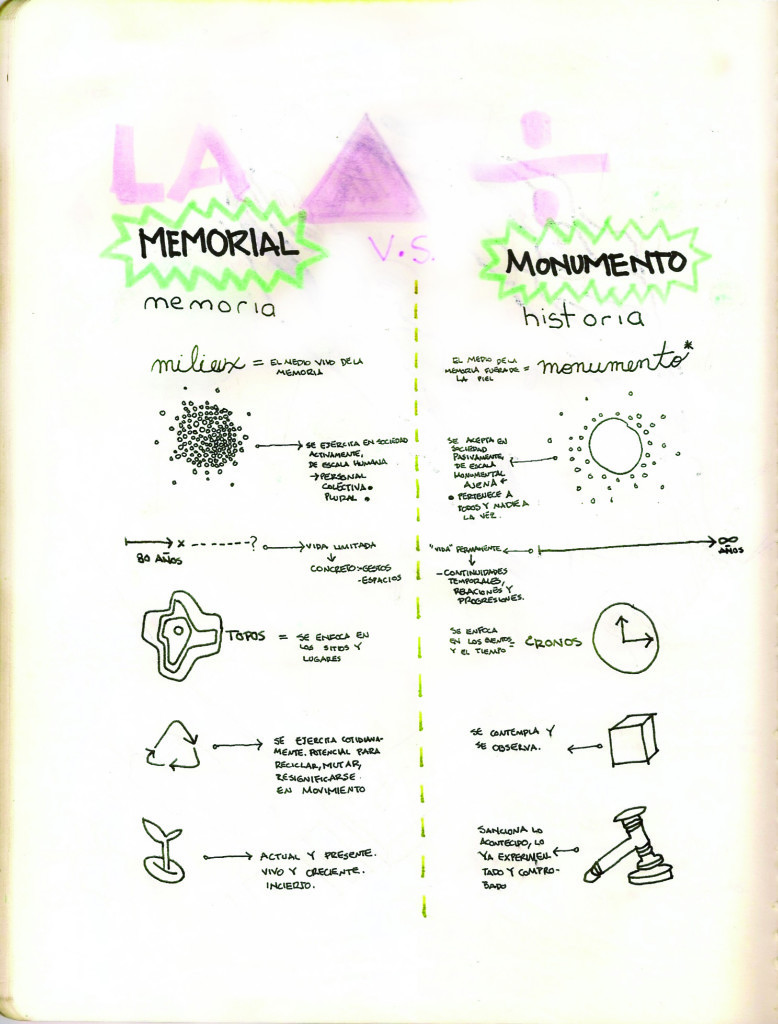 LA
MEMORIAL
V.S.
MONUMENTO
memoria
historia
milieux = EL MEDIO VIVO DE LA
MEMORIA
SE EJERCITA EN SOCIEDAD
ACTIVAMENTE,
DE ESCALA HUMANA
→ PERSONAL
COLECTIVA
PLURAL
80 AÑOS
x ------?
VIDA LIMITADA
CONCRETO: -GESTOS
-ESPACIOS
TOPOS = SE ENFOCA EN
LOS SITIOS Y
LUGARES
SE EJERCITA COTIDIANA-
MENTE. POTENCIAL PARA
RECICLAR, MUTAR,
RESIGNIFICARSE.
EN MOVIMIENTO
ACTUAL Y PRESENTE.
VIVO Y CRECIENTE.
INCIERTO.
EL MEDIO DE LA
MEMORIA FUERA DE = monumento*
LA PIEL
SE ACEPTA EN
SOCIEDAD
PASIVAMENTE,
DE ESCALA
MONUMENTAL
AJENA
• PERTENECE A
TODOS Y NADIE A
LA VEZ.
"VIDA" PERMANENTE
∞
AÑOS
-CONTINUIDADES
TEMPORALES,
RELACIONES Y
PROGRESIONES.
SE ENFOCA
EN LOS EVENTOS = CRONOS
Y EL TIEMPO
SE CONTEMPLA Y
SE OBSERVA.
SANCIONA LO
ACONTECIDO, LO
YA EXPERIMEN
TADO Y COMPRO-
BADO